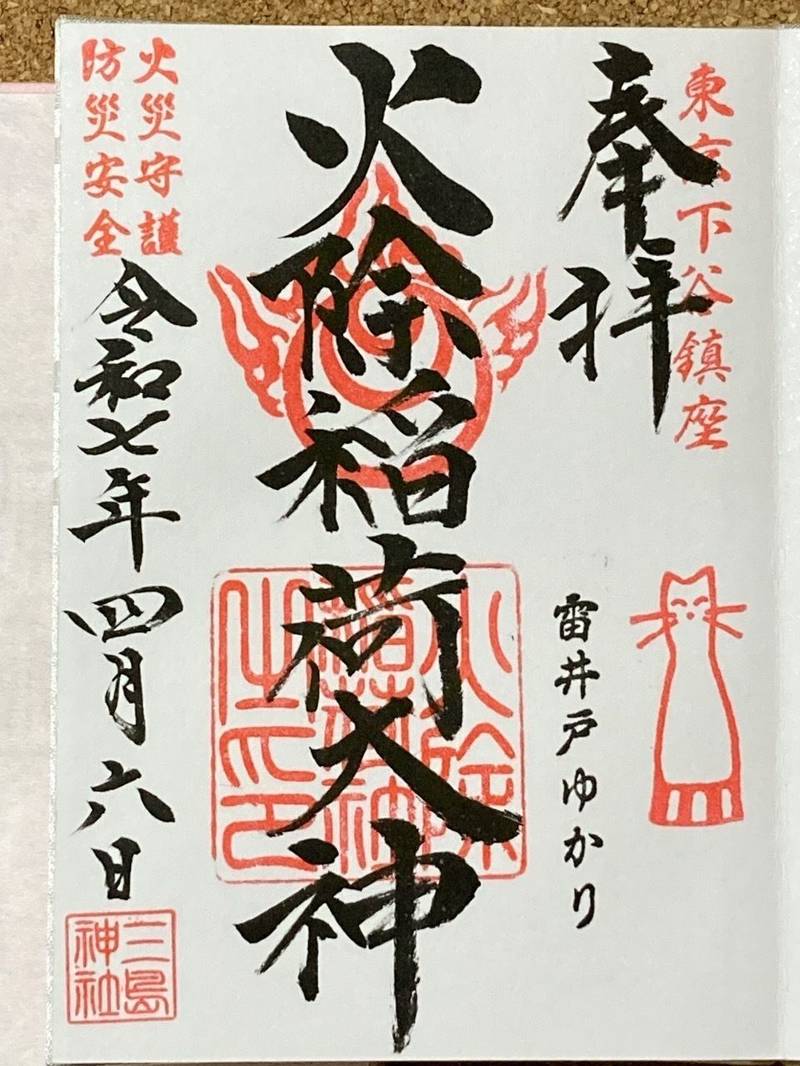 東京下谷鎮座
奉拝
雷井戸ゆかり
火除稲荷大神
火除
稲荷神
之印
火災守護
防災安全
令和七年四月六日
三島
神社